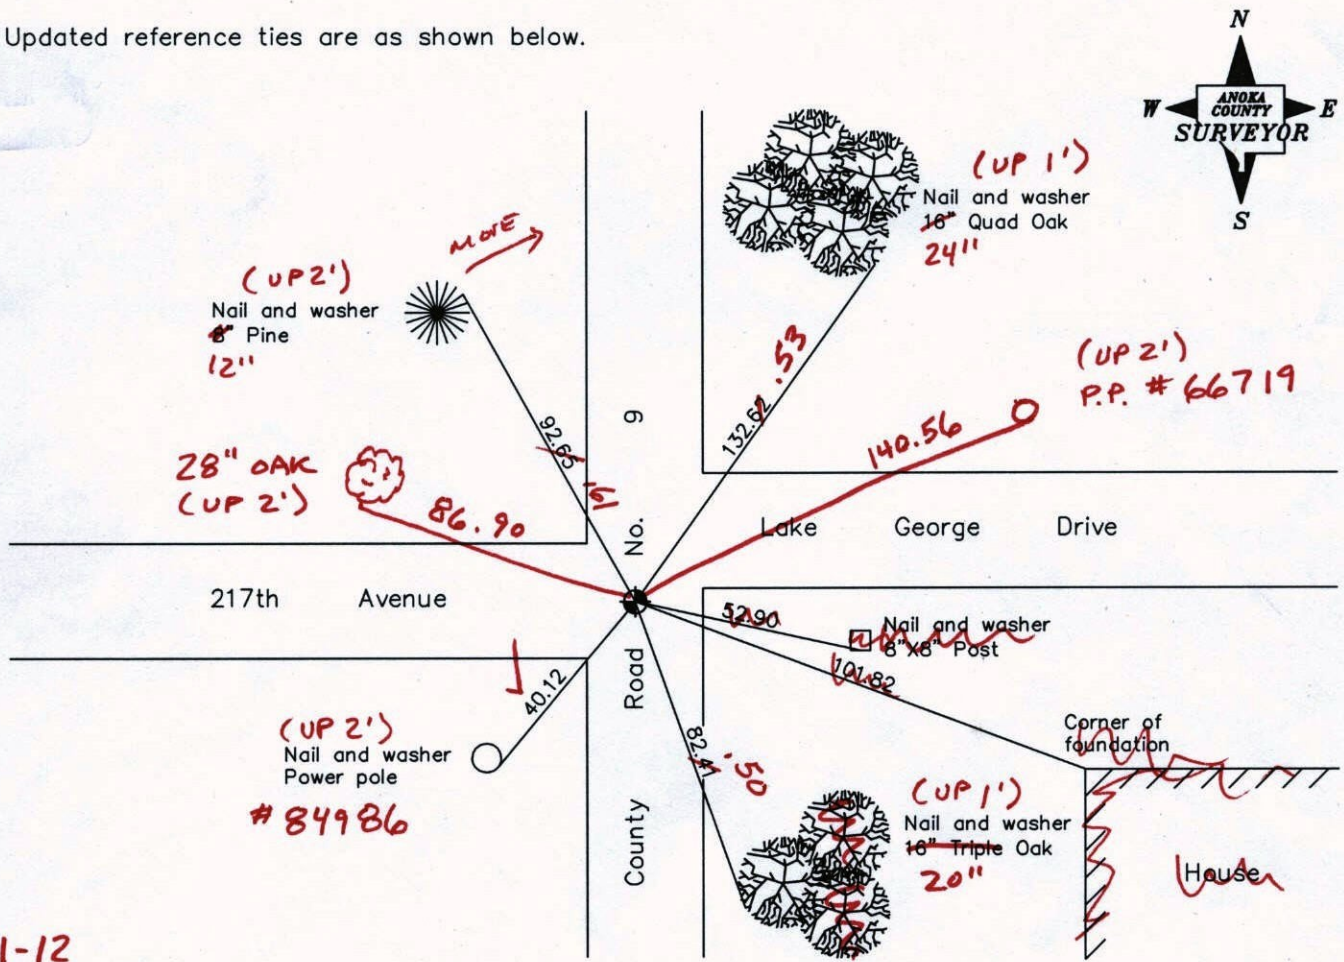 Updated reference ties are as shown below.
N
W
ANOKA
COUNTY
SURVEYOR
E
S
(UP 1')
Nail and washer
16" Quad Oak
24"
MOVE
(UP 2')
Nail and washer
8" Pine
12"
92.65
.61
132.62
.53
(UP 2')
P.P. # 66719
140.56
28" OAK
(UP 2')
86.90
County Road No. 9
Lake George Drive
217th Avenue
52.90
Nail and washer
8"X8" Post
101.82
40.12
(UP 2')
Nail and washer
Power pole
# 84986
82.41
.50
Corner of
foundation
House
(UP 1')
Nail and washer
16" Triple Oak
20"
1-12